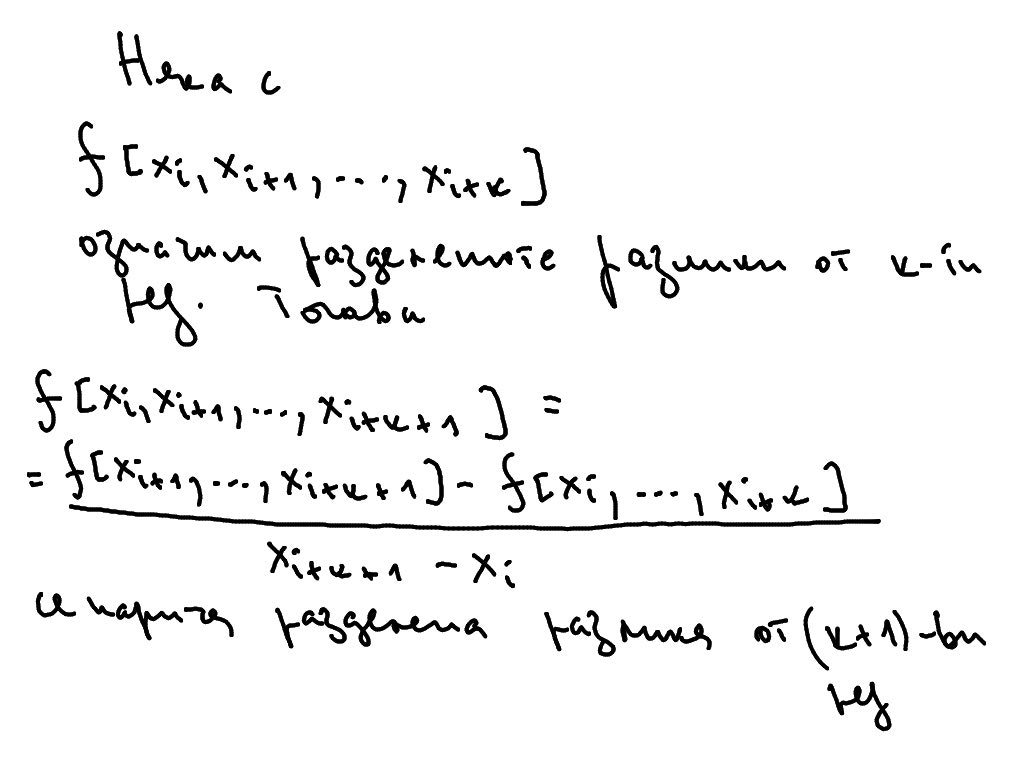 Нека с
f[x_i, x_{i+1}, ..., x_{i+k}]
означим разделените разлики от k-ти
ред. Тогава
f[x_i, x_{i+1}, ..., x_{i+k+1}] =
= \frac{f[x_{i+1}, ..., x_{i+k+1}] - f[x_i, ..., x_{i+k}]}{x_{i+k+1} - x_i}
се нарича разделена разлика от (k+1)-ви
ред